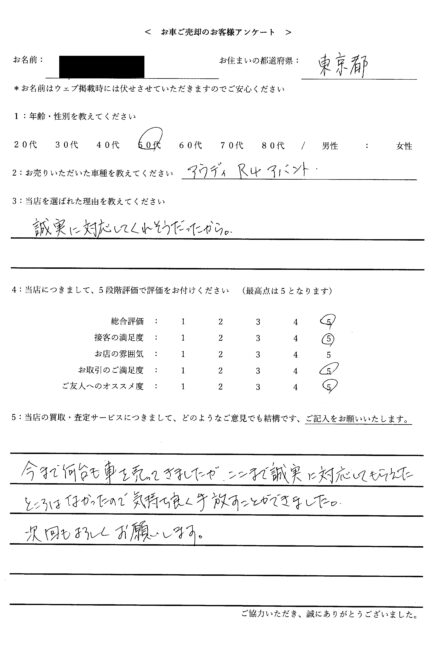 < お車ご売却のお客様アンケート >
お名前： お住まいの都道府県： 東京都
*お名前はウェブ掲載時には伏せさせていただきますのでご安心ください
1：年齢・性別を教えてください
20代 30代 40代 50代 60代 70代 80代 / 男性 ： 女性
2：お売りいただいた車種を教えてください アウディ R4 アバント.
3：当店を選ばれた理由を教えてください
誠実に対応してくれそうだったから。
4：当店につきまして、5段階評価で評価をお付けください （最高点は5となります）
総合評価 ： 1 2 3 4 5
接客の満足度 ： 1 2 3 4 5
お店の雰囲気 ： 1 2 3 4 5
お取引のご満足度 ： 1 2 3 4 5
ご友人へのオススメ度 ： 1 2 3 4 5
5：当店の買取・査定サービスにつきまして、どのようなご意見でも結構です、ご記入をお願いいたします。
今まで何台も車を売ってきましたが ここまで誠実に対応してもらえた
ところはなかったので気持ち良く手放すことができました。
次回もよろしくお願いします。
ご協力いただき、誠にありがとうございました。